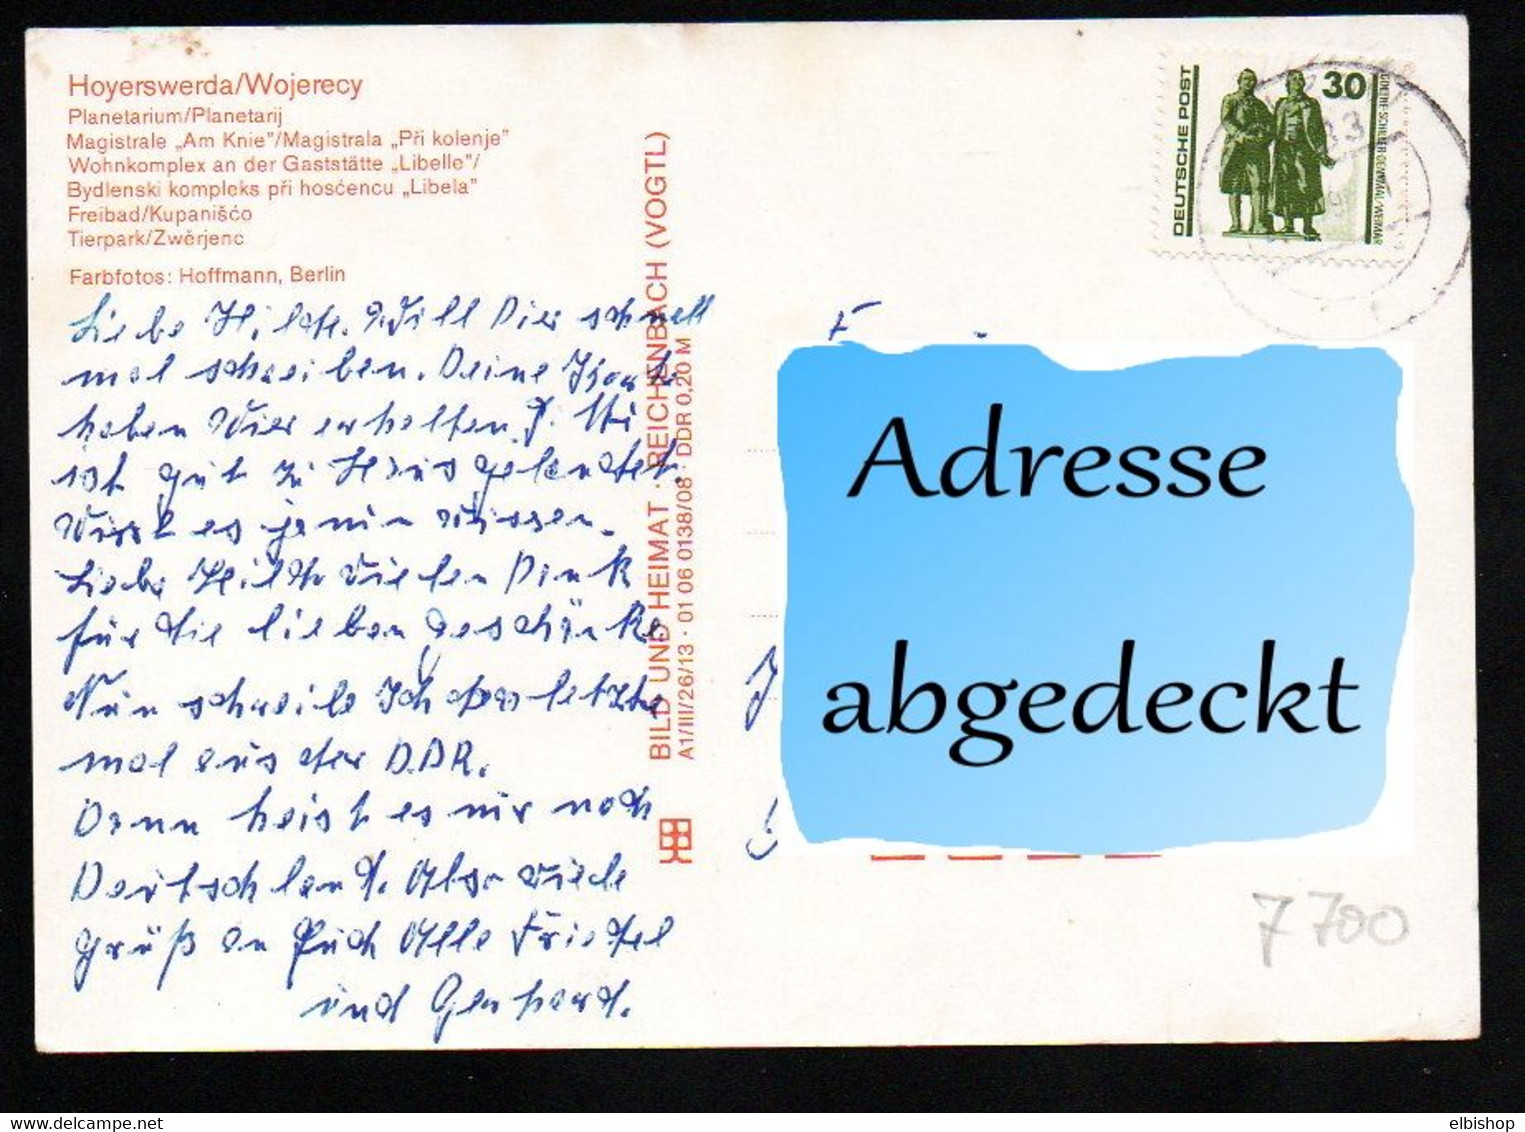 Hoyerswerda/Wojerecy
Planetarium/Planetarij
Magistrale „Am Knie"/Magistrala „Při kolenje"
Wohnkomplex an der Gaststätte „Libelle"/
Bydlenski kompleks při hosćencu „Libela"
Freibad/Kupanišćo
Tierpark/Zwěrjenc
Farbfotos: Hoffmann, Berlin
Liebe Hilde. Will Dier schnell
mal schreiben. Deine Karte
haben Wier erhalten.
ist gut zu Haus gelandet.
Wirst es ja nun wissen.
Liebe Hilde vielen Dank
für die lieben geschänke
Nun schreibe Ich das letzte
mal aus der D.D.R.
Dann heist es nur noch
Deutschland. Also viele
Grüß an Euch Alle Friedel
und Gerhard.
BILD UND HEIMAT · REICHENBACH (VOGTL)
A1/III/26/13 · 01 06 0138/08 · DDR 0,20 M
DEUTSCHE POST
30
GOETHE-SCHILLER-DENKMAL/WEIMAR
Adresse
abgedeckt
7700
elbishop